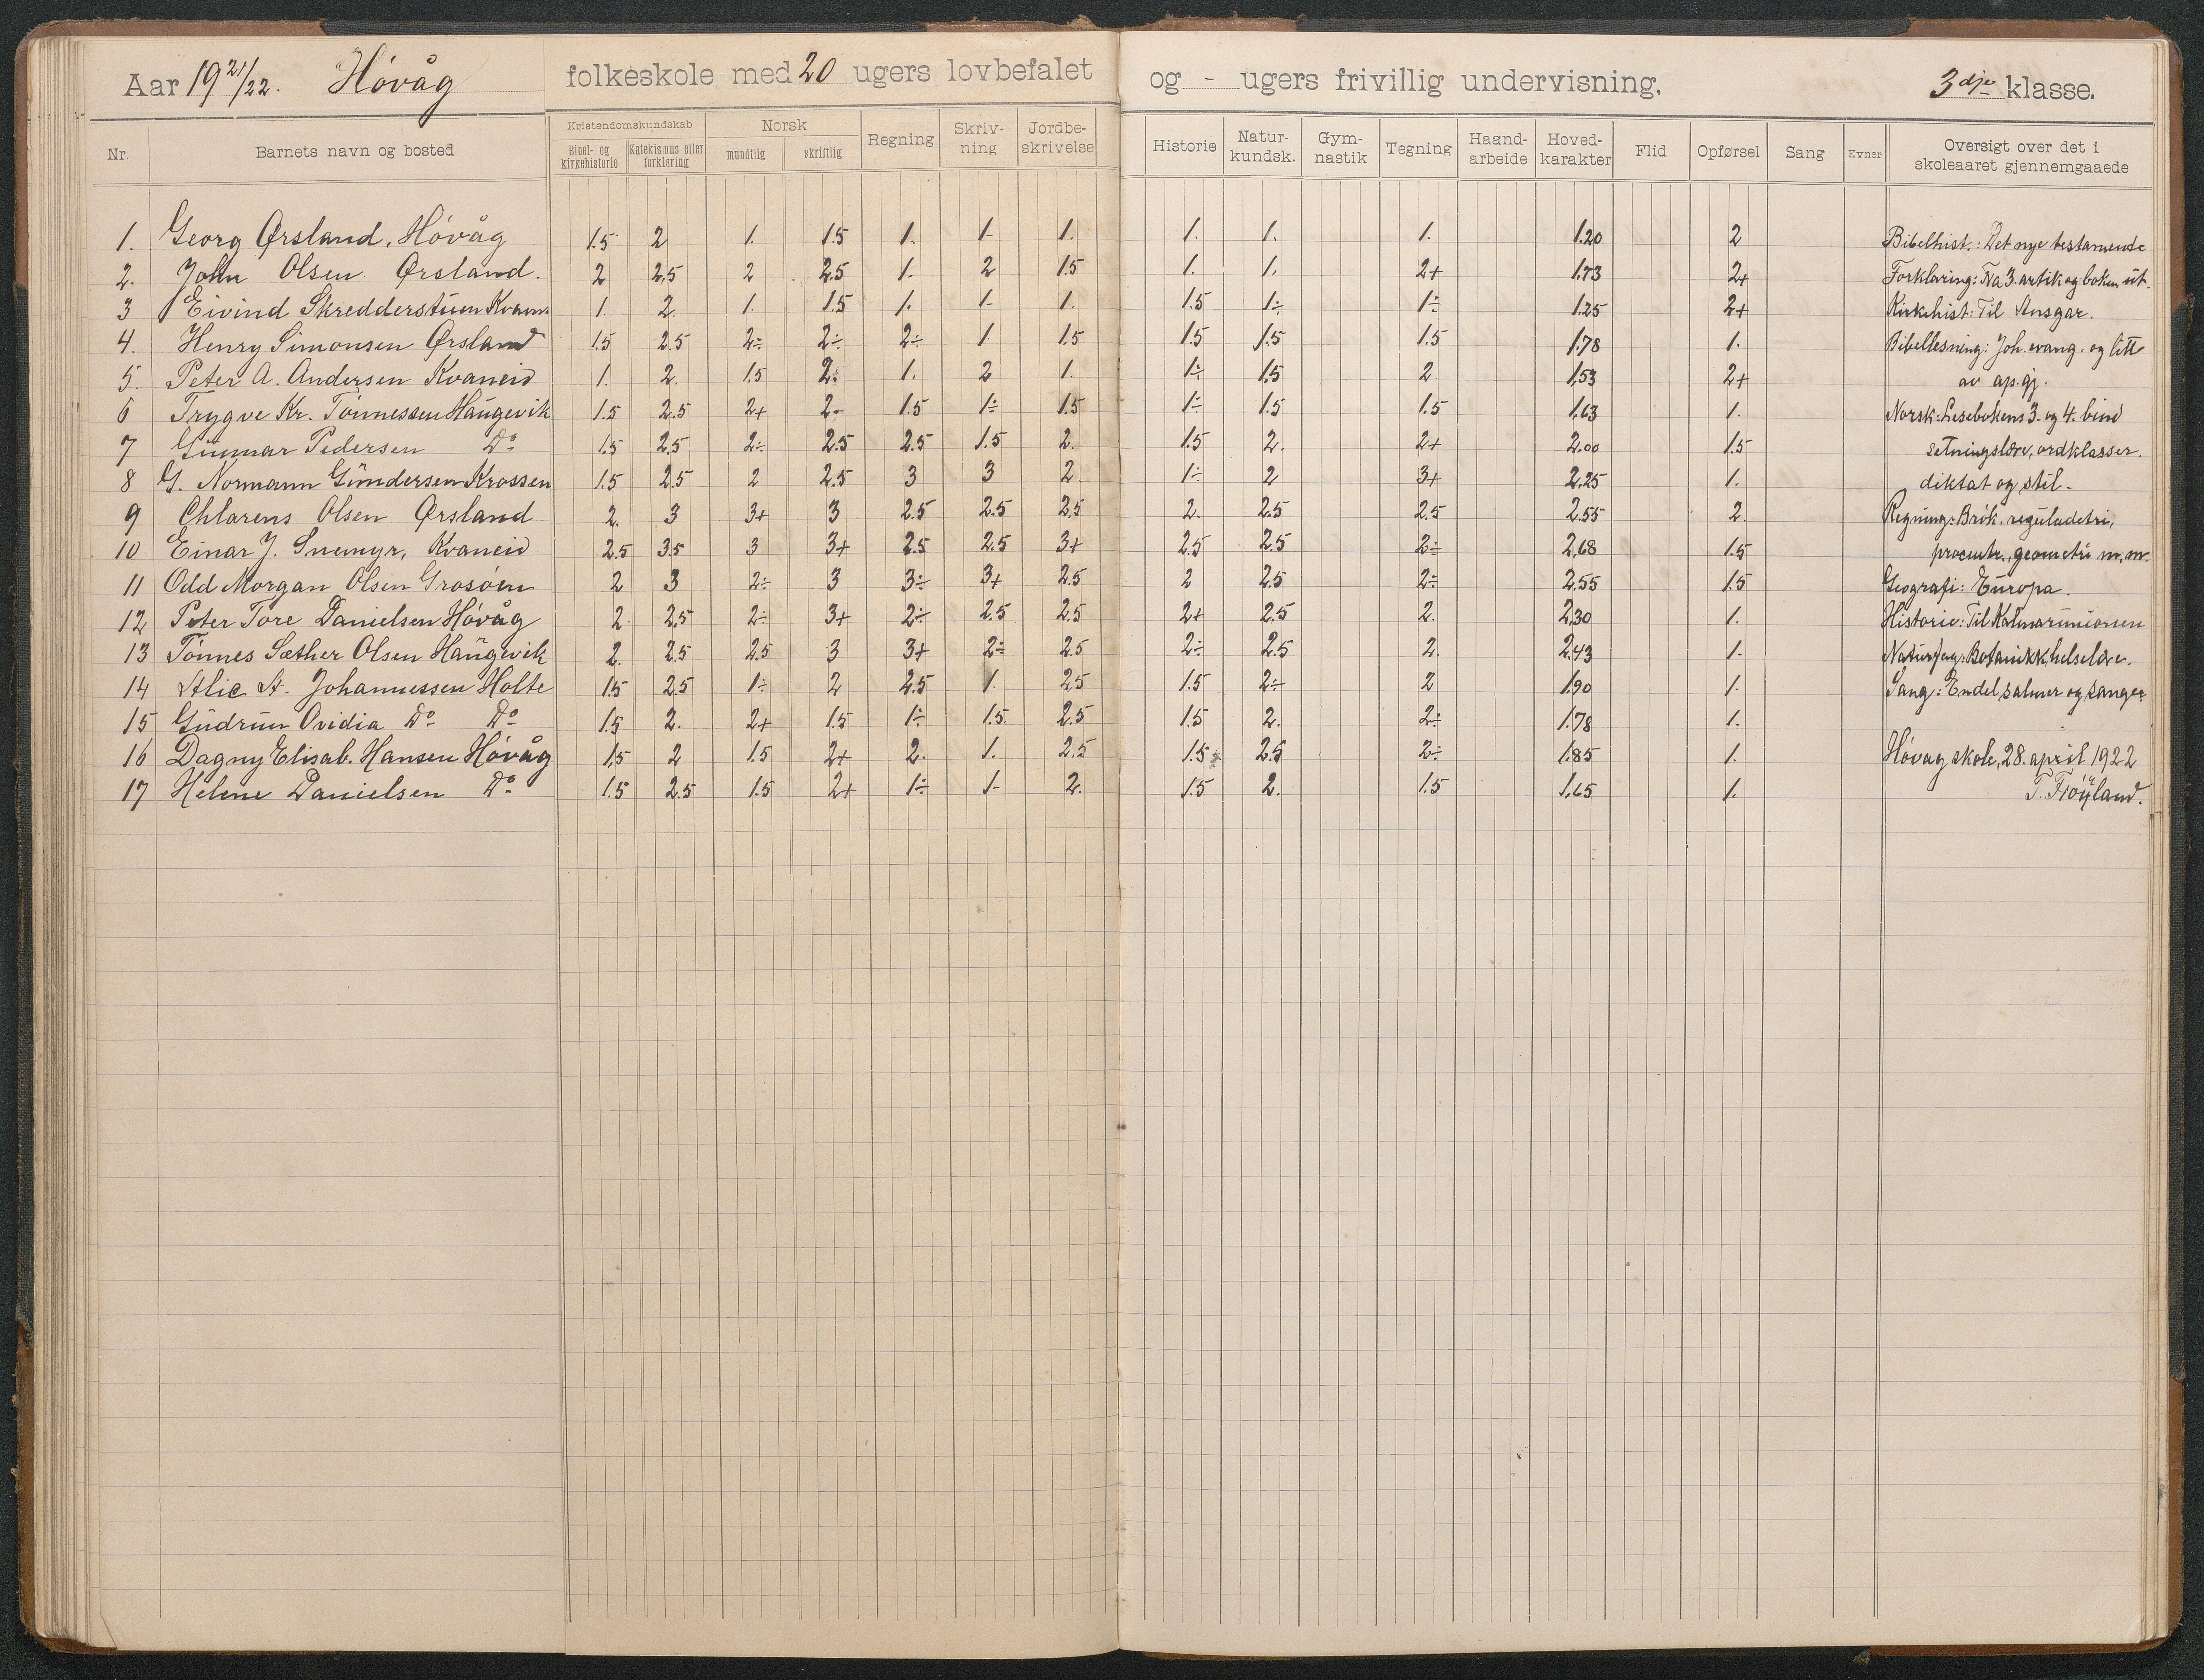 Aar 19 21/22. Høvåg folkeskole med 20 ugers lovbefalet og - ugers frivillig undervisning. 3dje klasse.
Nr. Barnets navn og bosted Kristendomskundskab Bibel- og kirkehistorie Katekismus eller forklaring Norsk mundtlig skriftlig Regning Skriv-ning Jordbe-skrivelse Historie Natur-kundsk. Gym-nastik Tegning Haand-arbeide Hoved-karakter Flid Opførsel Sang Evner Oversigt over det i skoleaaret gjennemgaaede
1. Georg Ørsland, Høvåg 1.5 2 1. 1.5 1. 1- 1. 1. 1. 1. 1.20 2 Bibelhist.: Det nye testamente
2. John Olsen Ørsland. 2 2.5 2 2.5 1. 2 1.5 1. 1. 2+ 1.73 2+ Forklaring: Fra 3. artik og boken ut.
3 Eivind Skredderstuen Kvanei 1. 2. 1. 1.5 1. 1- 1. 1.5 1÷ 1÷ 1.25 2+ Kirkehist: Til Ansgar.
4. Henry Simonsen Ørsland 1.5 2.5 2÷ 2÷ 2÷ 1 1.5 1.5 1.5 1.5 1.78 1. Bibellesning: Joh. evang. og litt
5. Peter A. Andersen Kvaneid 1. 2. 1.5 2÷ 1. 2 1. 1÷ 1.5 2 1.53 2+ av ap. gj.
6 Trygve Kr. Tønnessen Haugevik 1.5 2.5 2+ 2- 1.5 1÷ 1.5 1÷ 1.5 1.5 1.63 1. Norsk: Lesebokens 3. og 4. bind
7 Gunnar Pedersen Do 1.5 2.5 2÷ 2.5 2.5 1.5 2. 1.5 2. 2+ 2.00 1.5 setningslære, ordklasser.
8 G. Normann Gundersen Krossen 1.5 2.5 2 2.5 3 3 2. 1÷ 2 3+ 2.25 1. diktat og stil.
9 Chlarens Olsen Ørsland 2. 3 3+ 3 2.5 2.5 2.5 2. 2.5 2.5 2.55 2. Regning: Brøk, reguladetri,
10 Einar J. Snemyr, Kvaneid 2.5 3.5 3 3+ 2.5 2.5 3+ 2.5 2.5 2÷ 2.68 1.5 procentr., geometri m. m.
11 Odd Morgan Olsen Grosøen 2 3 2÷ 3 3÷ 3+ 2.5 2 2.5 2÷ 2.55 1.5 Geografi: Europa.
12 Peter Tore Danielsen Høvåg 2 2.5 2÷ 3+ 2÷ 2.5 2.5 2+ 2.5 2. 2.30 1. Historie: Til Kalmarunionen
13 Tønnes Sæther Olsen Haugevik 2. 2.5 2.5 3 3+ 2÷ 2.5 2÷ 2.5 2. 2.43 1. Naturfag: Botanikk, helselære.
14 Alic A. Johannessen Holte 1.5 2.5 1÷ 2 2.5 1. 2.5 1.5 2÷ 2 1.90 1. Sang: Endel salmer og sanger
15 Gudrun Ovidia Do Do 1.5 2. 2+ 1.5 1÷ 1.5 2.5 1.5 2. 2÷ 1.78 1.
16 Dagny Elisab. Hansen Høvåg 1.5 2 1.5 2+ 2. 1. 2.5 1.5 2.5 2÷ 1.85 1. Høvag skole, 28. april 1922
17 Helene Danielsen Do 1.5 2.5 1.5 2+ 1÷ 1- 2. 1.5 2. 1.5 1.65 1. T. Frøyland.